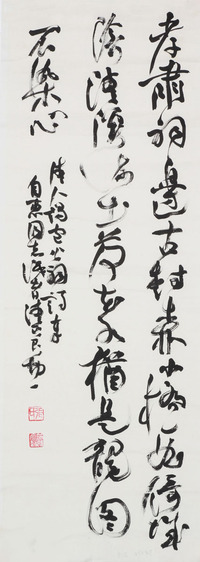 孝肅祠邊古樹森小橋一曲倚城
陰清溪流出荷花水猶是龍圖
不染心
清人謁包公祠詩
同志